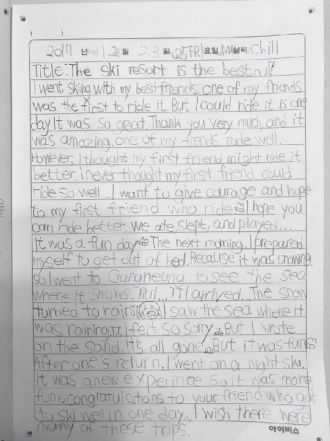 2017 년 12 월 22 일 FRI 요일 날씨 Chill
Title: The ski resort is the best
I went skiing with my best friends, one of my friends
was the first to ride it. But I could ride it is one
day It was so great Thank you very much, and it
was amazing. one of my friends ride well.
However, I thought my first friend might ride it
better. I never thought my first friend could
ride so well... I want to give courage and hope
to my first friend who ride I hope you
can ride better we ate, slept, and played...
It was a fun day The next morning, I prepared
myself to get out of bed. Because it was snowing
so I went to Gangneung to see the sea
where it snows. But... I arrived... The snow
turned to rain I saw the sea where it
was raining I felt so sorry But I write
on the sand. It's all gone But it was fun
After one's return, I went on a night ski.
it was a new experince So it was more
fun congratulations to your friend who got
to ski well in one day. I wish there were
many of these trips.
아이비스